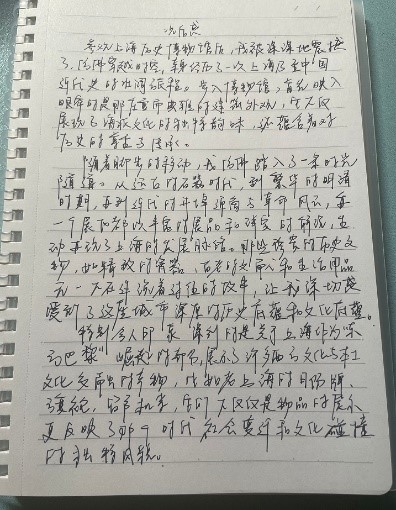 观后感
参观上海历史博物馆后，我被深深地震撼
了，仿佛穿越时空，亲身经历了一次上海乃至中国
近代史的壮阔旅程。步入博物馆，首先映入
眼帘的是那庄重而典雅的建筑外观，它不仅
展现了海派文化的独特韵味，还蕴含着对
历史的尊重与传承。
随着脚步的移动，我仿佛踏入了一条时光
隧道。从远古的石器时代，到繁华的明清
时期，再到近代的开埠通商与革命风云，每
一个展区都以丰富的展品和详实的解说，生
动再现了上海的发展脉络。那些珍贵的历史文
物，如精致的瓷器、古老的文献和生活用品
无一不在诉说着过往的故事，让我深切感
受到了这座城市深厚的历史底蕴和文化底蕴。
特别令人印象深刻的是关于上海作为"东
方巴黎"崛起的部分，展示了许多西方文化与本土
文化交融的实物，比如老上海的月份牌、
旗袍、留声机等，它们不仅仅是物品的展示
更反映了那个时代社会变迁和文化碰撞
的独特风貌。